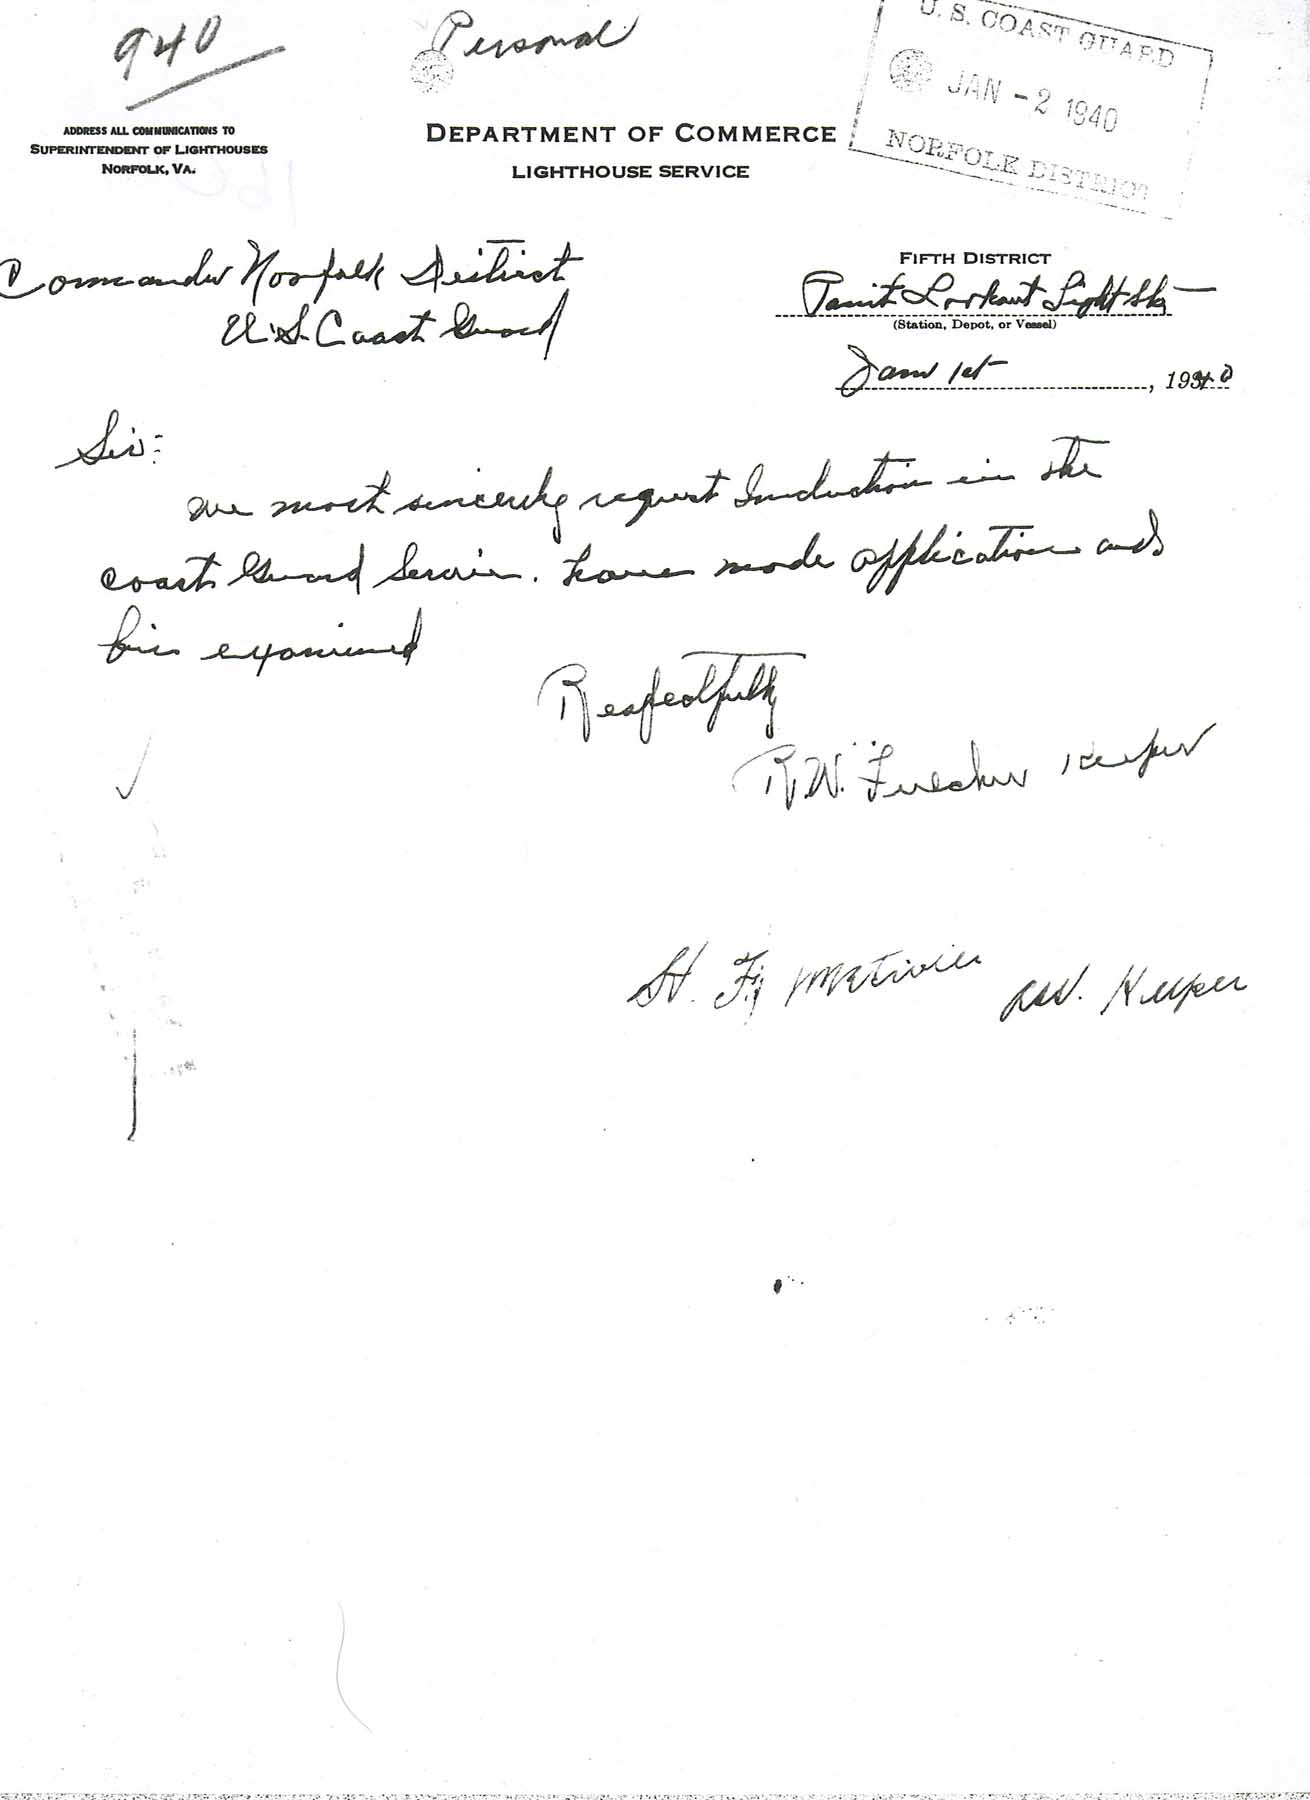 940
Personal
U. S. COAST GUARD
JAN - 2 1940
NORFOLK DISTRICT
ADDRESS ALL COMMUNICATIONS TO
SUPERINTENDENT OF LIGHTHOUSES
NORFOLK, VA.
DEPARTMENT OF COMMERCE
LIGHTHOUSE SERVICE
Commander Norfolk District
U.S. Coast Guard
FIFTH DISTRICT
Point Lookout Light Sta
(Station, Depot, or Vessel)
Jan 1st, 1940
Sir:
We most sincerely request Induction in the
coast Guard Service. have made application and
bin examined
Respectfully
R.W. Fulcher Keeper
H. F. Metivier Keeper